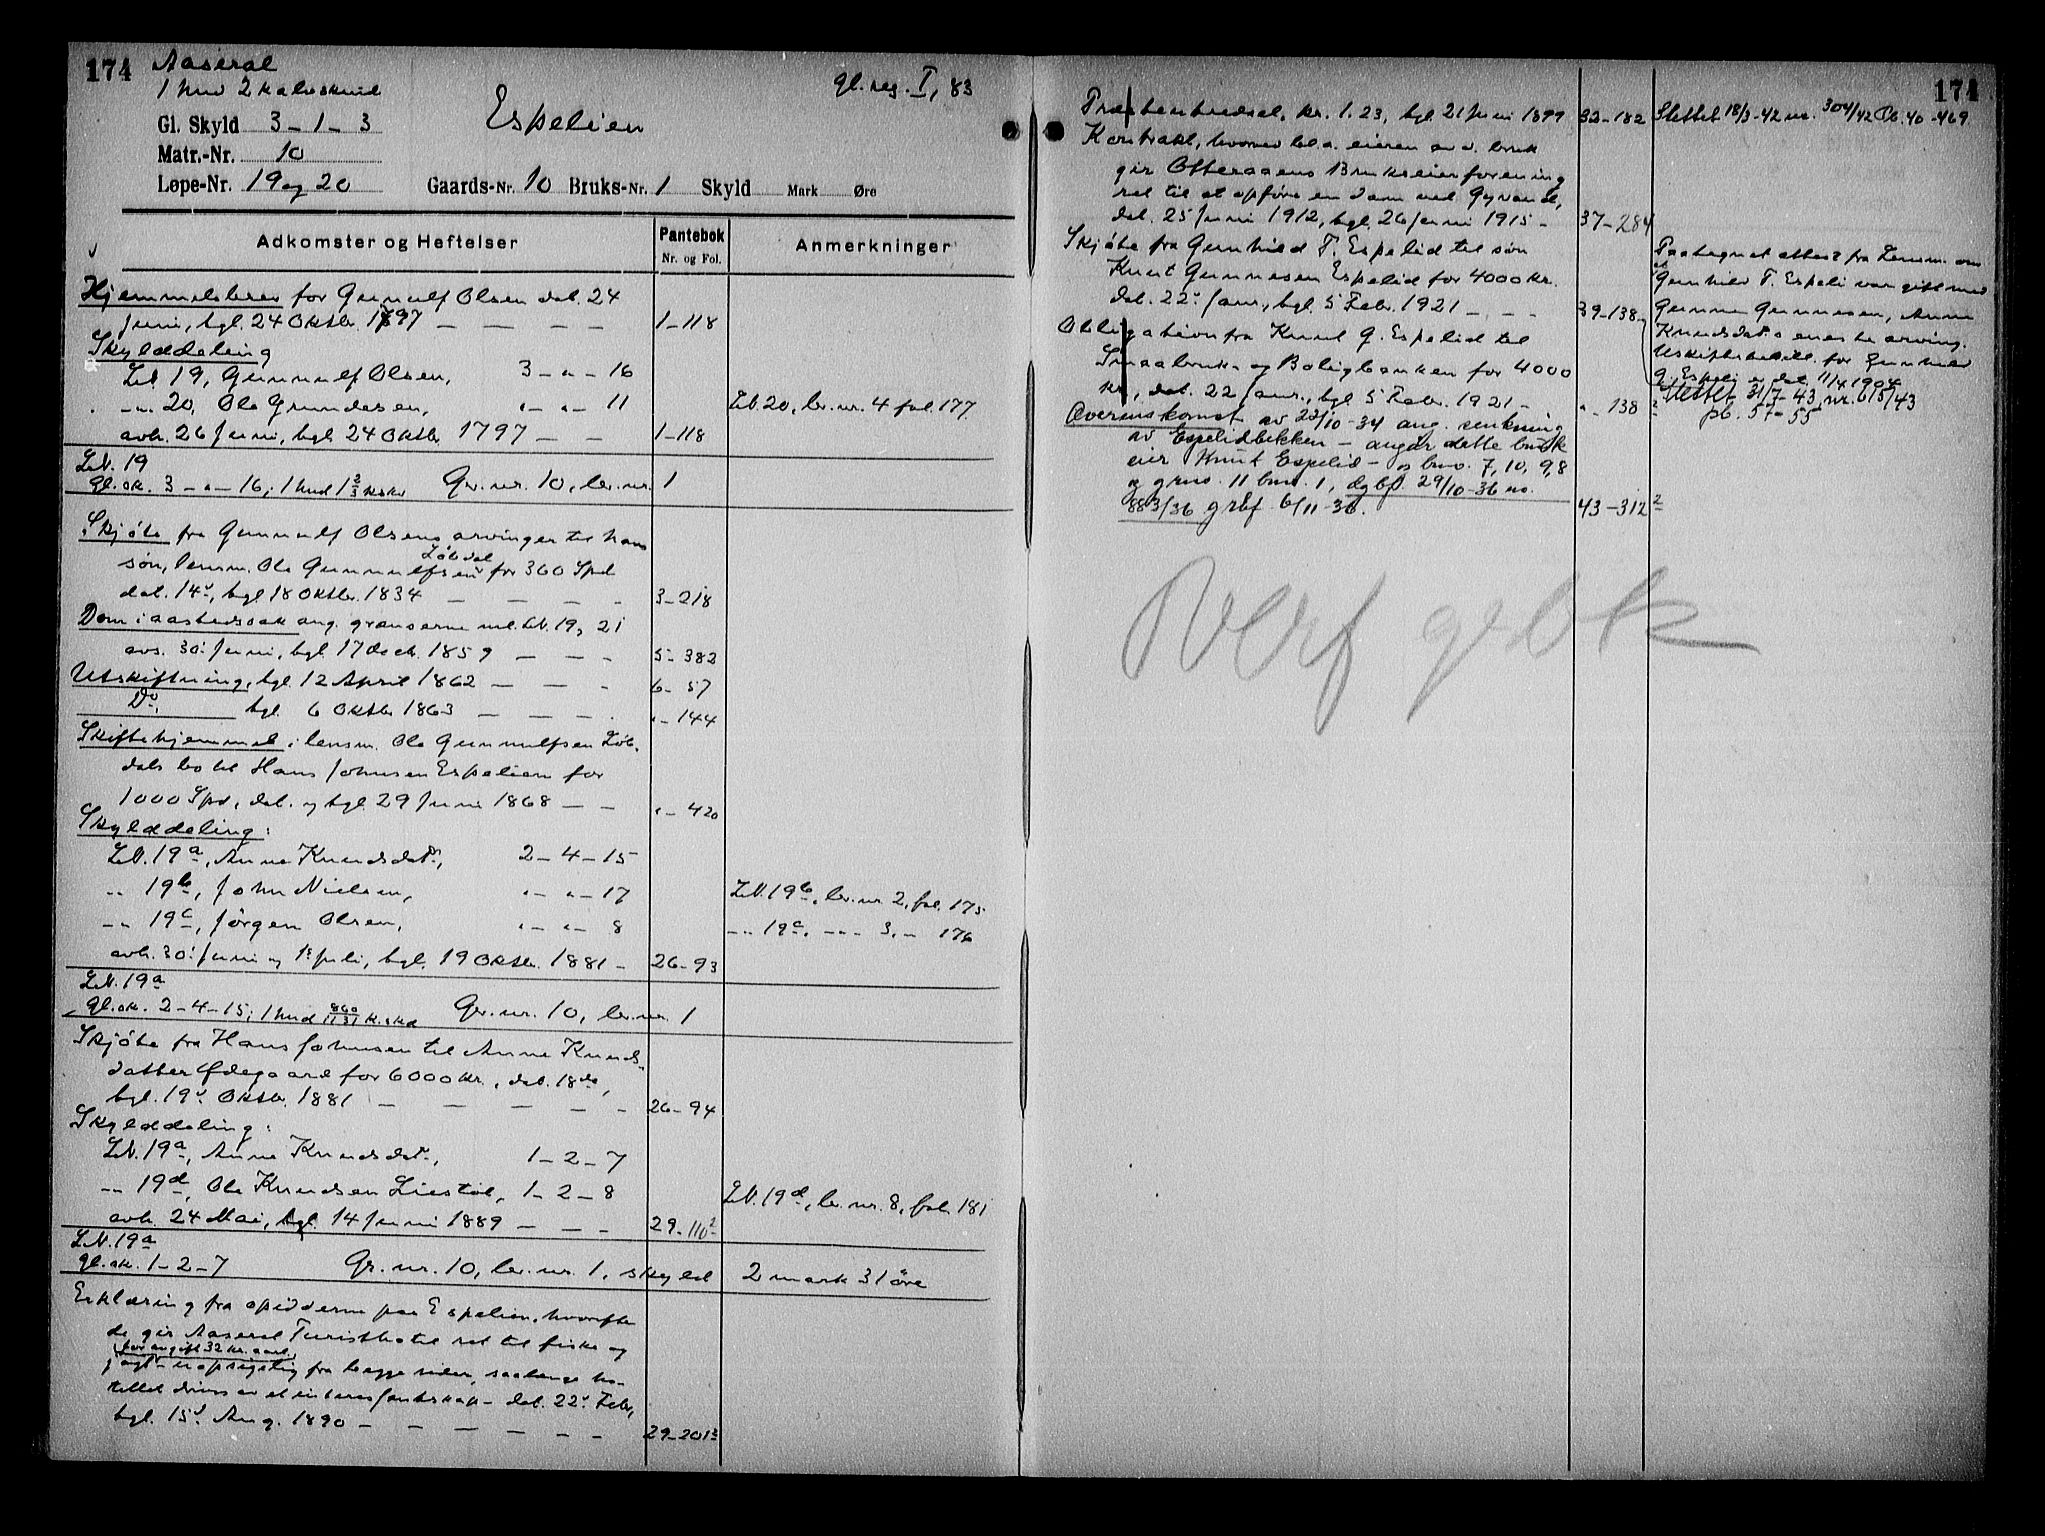 174 Aaseral
1 hud 2 kalvskind
gl. reg. I, 83
Gl. Skyld 3-1-3
Espelien
Matr.-Nr. 10
Løpe-Nr. 19 og 20 Gaards-Nr. 10 Bruks-Nr. 1 Skyld Mark Øre
Adkomster og Heftelser Pantebok Nr. og Fol. Anmerkninger
Hjemmelsbrev for Gunulf Olsen dat. 24
Juni, tgl. 24 Oktbr. 1797 — — — — 1-118
Skylddeling
LN 19, Gunnulf Olsen, 3 - " - 16
" - " 20, Ole Gundersen, " - " - 11 LN. 20, br. nr. 4 fol. 177
avh. 26 Juni, tgl. 24 Oktbr. 1797 — — 1-118
LN. 19
gl. sk. 3 - " - 16; 1 hud 1 2/3 kskd Gr. nr. 10, br. nr. 1
Skjøte fra Gunnulf Olsens arvinger til hans
søn, lensm. Ole Gunnulfsen Løbdal for 360 Spd
dat. 14d, tgl. 18 Oktbr. 1834 — — — — 3-218
Dom i aastedssak ang. grænserne ml. LN. 19, 21
avs. 30. Juni, tgl. 17 decb. 1859 — — — 5-382
Utskiftning, tgl. 12 April 1862 — — — 6-57
Do. tgl. 6 Oktbr 1863 — — — . "-144
Skiftehjemmel i lensm. Ole Gunnulfsen Løb-
dals bo til Hans Johnsen Espelien for
1000 Spd, dat. og tgl. 29 Juni 1868 — — "-420
Skylddeling:
LN. 19a, Anne Knudsdatr, 2-4-15
" 19b, John Nielsen, " - " - 17 LN. 19b, br. nr. 2, fol. 175
" 19c, Jørgen Olsen, " - " - 8 " 19c, " 3, " 176
avh. 30. Juni og 1. Juli, tgl. 19 Oktbr. 1881 - 26-93
LN. 19a
gl. sk. 2-4-15; 1 hud 860/1131 k.skd Gr. nr. 10, br. nr. 1
Skjøte fra Hans Johnsen til Anne Knuds-
datter Ødegaard for 6000 kr., dat. 18de,
tgl. 19d Oktbr. 1881 — — — — - 26-94
Skylddeling:
LN. 19a, Anne Knudsdatr., 1-2-7
" 19d, Ole Knudsen Liestøl, 1-2-8 LN. 19d, br. nr. 8, fol. 181
avh. 24 Mai, tgl. 14 Juni 1889 — — — 29-110²
LN. 19a
gl. sk. 1-2-7 Gr. nr. 10, br. nr. 1, skyld 2 mark 31 øre
Erklæring fra opsidderne paa Espelien, hvorefter
de gir Aaseral Turisthotel ret til fiske og
for avgift 32 kr. aarl.
jagt - uopsigelig fra begge sider, saalenge ho-
tellet drives av et interessentskap - dat. 22d Febr,
tgl. 15d Aug. 1890 — — — — — 29-201³
174
kr. 1.23, tgl 21 Juni 1899 32-182 Slettet 18/3-42 nr. 304/42 Pb. 40-469
Kontrakt, hvorved bl.a. eieren av d. bruk
gir Otteraaens Brukseierforening
ret til at opføre en dam ved Gyvand,
dat. 25 Juni 1912, tgl. 26 Juni 1915 - 37-284
Skjøte fra Gunhild T. Espelid til søn
Knut Gunnesen Espelid for 4000 kr.
dat. 22d Janr., tgl. 5 Febr. 1921 - - - 39-138
Paategnet attest fra Lensm. om
at Gunhild T. Espeli var gift med
Gunne Gunnesen, Anne
Knudsdatrs eneste arving.
Uskiftebevill. for Gunhild
G. Espeli er dat. 11/4 1904
Obligation fra Knut G. Espelid til
Smaabruk- og Boligbanken for 4000
kr., dat. 22 Janr., tgl. 5 Febr. 1921 - "-138² Slettet 31/7-43 nr. 615/43
pb. 57-55
Overenskomst av 22/10-34 ang. senkning
av Espelidbekken - angår dette bruk
eier Knut Espelid - og bno. 7, 10, 9, 8
og gno. 11 bno. 1, dgbf. 29/10-36 no.
883/36 grbf 6/11-36. 43-312²